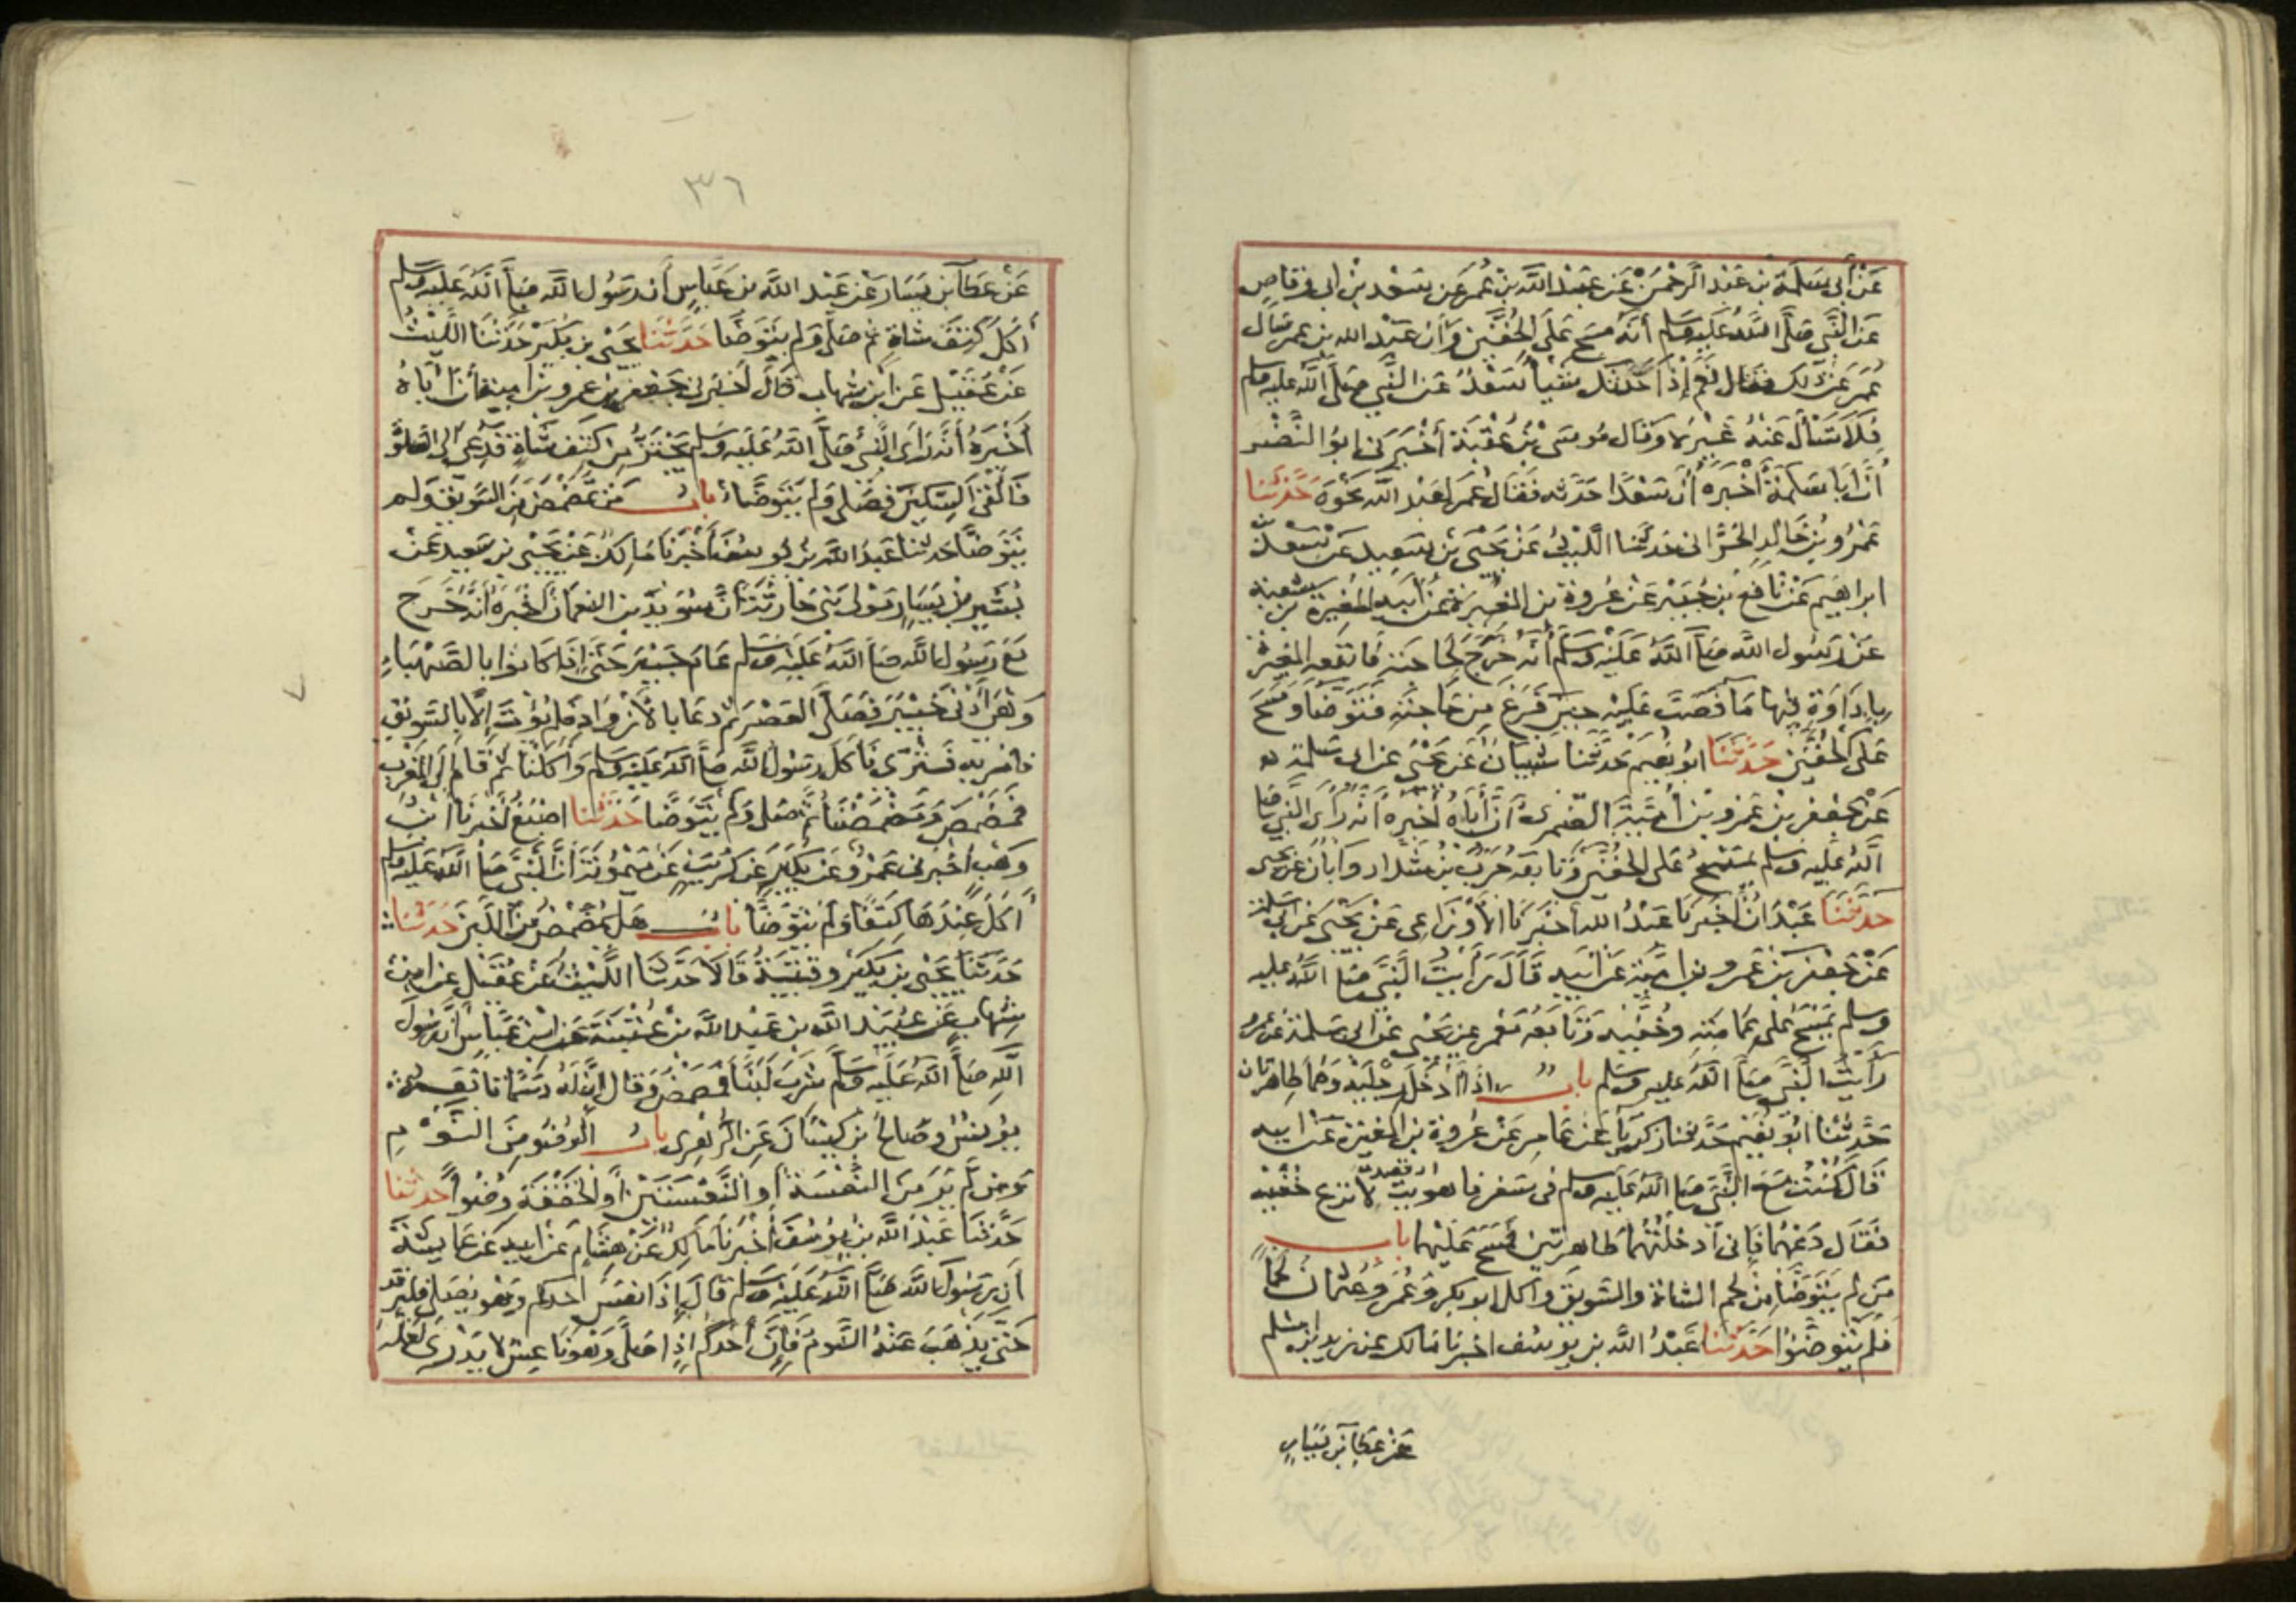 عَنْ أَبِي سَلَمَةَ بْنِ عَبْدِ الرَّحْمَنِ عَنْ عَبْدِ اللَّهِ بْنِ عُمَرَ عَنْ سَعْدِ بْنِ ابى وقاصٍ
عَنِ النَّبِيِّ صَلَّى اللَّهُ عَلَيْهِ وَسَلَّم أَنَّهُ مَسَحَ عَلَى الْخُفَّيْنِ وَأَنَّ عَبْدَ الله بن عمر سَأل
عُمَرَ عَنْ ذَلِكَ فَقَالَ نَعَمْ إِذَا حَدَّثَكَ شَيْئاً سَعْدٌ عَنِ النَّبِي صَلَّى اللَّه عليه وسلم
فَلَا تَسْأَلْ عَنْهُ غَيْرَهُ وَقَال مُوسَى بْنُ عُقْبَةَ أَخْبَرَنى ابوُ النَّضْر
أَنَّ أَبَا سَلَمَةَ أَخْبَرَه أَنَّ سَعْدًا حَدَّثه فَقَالَ عُمَر لِعَبْدِ اللَّه نَحْوَهُ حَدَّثَنَا
عَمْرُو بْنُ خَالِدٍ الحَرَّانى حَدَّثَنا اللَّيْثُ عَنْ يَحْيَى بْنِ سَعِيدٍ عَنْ سَعْد بن
ابراهيم عَنْ نَافِعِ بْنِ جُبَيْر عَنْ عُرْوَة بن المغيرَة عَنْ أَبِيهِ المُغِيرَة بن شعبة
عَنْ رَسُول اللَّه صَلَّى اللَّهُ عَلَيْهِ وَسَلَّمَ أنَّه خَرَجَ لِحَاجَتِهِ فَاتَّبَعَه المغيرَة
بِإِدَاوَةٍ فِيهَا مَا فَصَبَّ عَلَيْهِ حِينَ فَرَغَ مِنْ حَاجَتِهِ فَتَوَضَّأ وَمَسَحَ
عَلَى الْخُفَّيْنِ حَدَّثَنَا ابوُ نُعَيْم حَدَّثَنَا شَيْبَانُ عَنْ يَحْيَى عن ابى سَلمة
عَنْ جَعْفَرِ بْنِ عَمْرِو بْنِ أُمَيَّةَ الضمرى أَنَّ أَبَاهُ أَخْبَرَهُ أَنَّهُ رَأَى النَّبِي صَلى
اللَّهُ عَلَيْهِ وسلم يَمْسَحُ عَلَى الخُفَّيْنِ وَتَابَعَه حَرْبُ بْنُ شَدَّاد وَأَبَانُ عن يحيى
حَدَّثَنَا عَبْدَانُ أَخْبَرَنَا عَبْدُ الله أَخْبَرَنَا الأَوْزَاعِى عَنْ يَحْيَى عَنْ ابى سَلمة
عَنْ جَعْفَرِ بْنِ عَمْرِو بن امية عَنْ أَبِيهِ قَالَ رَأَيْتُ النَّبِيَّ صَلَّى اللَّهُ عليه
وسلم يَمْسَحُ عَلَى عِمَامَتِهِ وَخُفَّيْهِ وَتَابَعَهُ مَعْمَر عن يَحْيَى عَنْ ابى سَلَمَةَ عن عمرو
رَأَيْتُ النَّبِيَّ صَلَّى اللَّهُ عليه وسَلم باب اذا أَدْخَلَ رِجْلَيْهِ وَهُمَا طَاهِرتان
حَدَّثَنَا ابُو نُعَيْمٍ حَدَّثَنَا زكريا عَنْ عَامِرٍ عَنْ عُرْوَة بن المغيرة عَنْ ابيه
قَالَ كُنْتُ مَعَ النَّبِيِّ صَلَّى اللَّهُ عَلَيْهِ وسلم فى سَفر فاهويت لا نزع خُفَّيْه
فَقَال دَعْهُمَا فَإِنى أَدْخَلْتُهُمَا طَاهِرَتَيْنِ فمَسَح عَلَيْهِمَا باب
مَن لم يَتَوَضَّأْ مِنْ لحم الشاة والسَّوِيقِ واكل ابو بكر وَعُمَر وَعُثمان لَحْمًا
فَلَمْ يَتَوَضَّئُوا حَدَّثَنَا عَبْدُ اللَّه بن يوسف اخبرنا مَالك عن زيد ابن اسلم
عَنْ عَطَاء بن يَسَارٍ
٣٦
عَنْ عَطَاء بن يَسَار عَنْ عَبْد اللَّهِ بن عَبَّاسٍ أَنَّ رَسُول اللَّه صَلَّى اللَّهُ عَلَيْهِ وَسَلم
أَكَلَ كَتِفَ شَاةٍ ثم صَلَّى وَلم يَتَوَضَّأ حَدَّثَنَا يَحْيَى بن بُكَيْرٍ حَدَّثَنَا اللَّيْثُ
عَنْ عُقَيْل عَنِ ابْنِ شِهَاب قَالَ أَخْبَرَنى جَعْفَر بن عمرو بن امية أَنَّ أَبَاهُ
أَخْبَرَهُ أَنَّهُ رَأَى النَّبِيَّ صَلَّى اللَّهُ عَلَيْهِ وَسَلم يَحْتَزُّ مِنْ كَتِفِ شَاةٍ فَدُعِىَ إِلَى الصَّلاة
فَأَلْقَى السِّكِّينَ فَصَلَّى وَلم يَتَوَضَّأ باب مَنْ مَضْمَضَ مِنَ السَّوِيقِ وَلم
يَتَوَضَّأ حَدثنا عَبْدُ اللَّه بن يوسُفَ أَخْبَرَنَا مَالِكٌ عَنْ يَحْيَى بن سَعِيد عَنْ
بُشَيْرِ بْنِ يَسَارٍ مَوْلَى بَنى حَارِثَة أَنَّ سُوَيْدَ بْنَ النعمان أَخْبَرَهُ أَنَّهُ خَرَجَ
مَعَ رَسُول اللَّه صَلَّى اللَّهُ عَلَيْهِ وَسَلم عَامَ خَيْبَر حَتَّى إِذَا كَانوا بالصَّهْبَاءِ
وَهْىَ أَدْنَى خَيْبَرَ فَصَلَّى العَصْرَ ثم دَعَا بالأَزْوَادِ فلم يُؤْتَ إِلَّا بِالسَّوِيقِ
فامَر بِهِ فَثُرِّى فَأَكَلَ رَسُولُ اللَّه صَلَّى اللَّهُ عَلَيْهِ وَسلم وَأَكَلْنَا ثم قَامَ إلَى المَغْرِب
فَمَضْمَضَ وَمَضْمَضْنَا ثُمَّ صَلى وَلَمْ يَتَوَضَّأ حَدَّثَنَا اصْبَغُ أَخْبَرَنَا ابْنُ
وَهْبٍ اخْبرنى عَمْرٌو عَنْ بُكَيْرٍ عَنْ كُرَيْبٍ عَنْ مَيْمُونَةَ أَنَّ النَّبِيَّ صَلَّى اللَّهُ عَلَيْهِ وَسَلم
أَكَلَ عِنْدَهَا كَتِفًا وَلَم يَتَوَضَّأ باب هَلْ يُمَضْمِضُ مِنَ اللَّبَنِ حَدثَنَا
حَدَّثَنَا يَحْيَى بن بُكَيْرٍ وقُتَيْبَةُ قَالَا حَدَّثَنَا اللَّيْثُ عَنْ عُقَيْل عن ابن
شِهَابٍ عَنْ عُبَيْدِ اللَّهِ بن عَبْدِ اللَّهِ بْنِ عُتْبَةَ عَنِ ابْنِ عَبَّاسٍ أنَّ رَسُولَ
اللَّهِ صَلَّى اللَّهُ عَلَيْهِ وَسَلَّم شَرِبَ لَبَنًا فمَضْمَضَ وَقَال إِنَّ لَهُ دَسَمًا تابَعَه
يُونُسُ وصَالحُ بْن كَيْسَانَ عَنِ الزُّهْرى باب الوُضُوءِ مِنَ النَّوْمِ
وَمَنْ لَمْ يَرَ مِنَ النَّعْسَة أَوِ النَّعْسَتَيْنِ أَوِ الخَفْقَةِ وُضُوءًا حدثنا
حَدَّثَنَا عَبْدُ اللَّه بن يُوسُفَ أَخْبَرَنَا مَالِكٌ عَنْ هِشَامٍ عَنْ ابِيهِ عَنْ عَايِشَةَ
أَنَّ رَسُولَ اللَّه صَلَّى اللَّهُ عَلَيْهِ وسَلَّم قَالَ إِذَا نَعَسَ أحدكم وَهو يُصَلى فليرقد
حَتَّى يَذْهَبَ عَنْهُ النَّوم فَإِنَّ أَحَدَكُم إذا صَلَّى وَهو نَاعِسٌ لا يَدْرِى لَعَلَّهُ